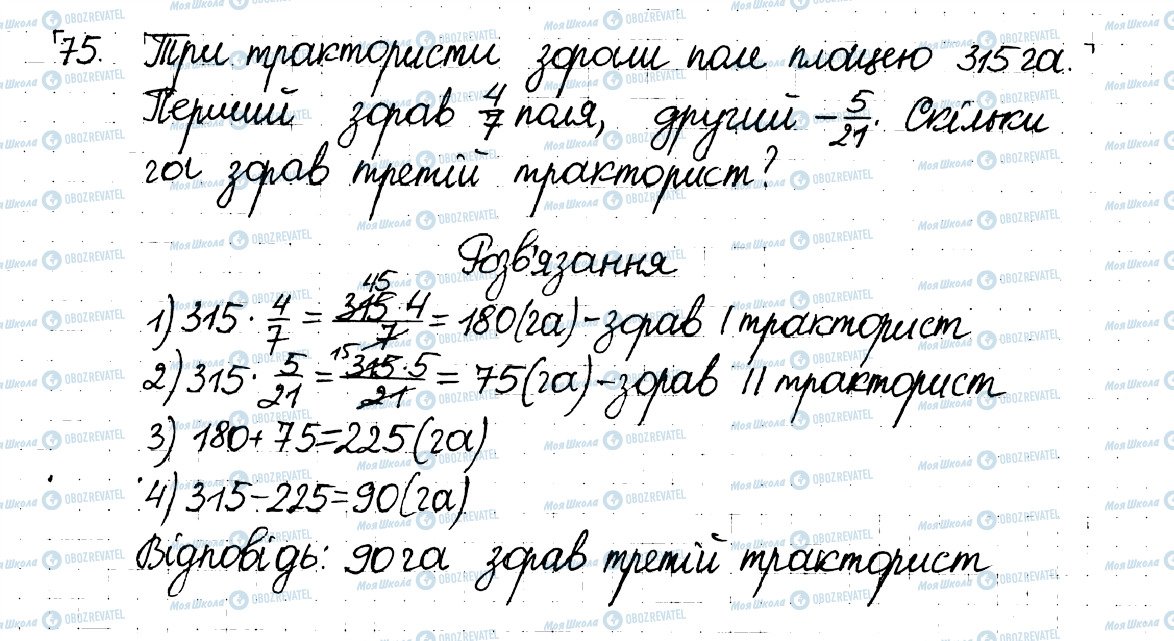 75. Три трактористи зорали поле площею 315 га.
Перший здрав 4/7 поля, другий – 5/21. Скільки
га здрав третій тракторист?
Розв'язання
1) 315 · 4/7 = 315·4/7 = 180 (га) – здрав I тракторист
2) 315 · 5/21 = 315·5/21 = 75 (га) – здрав II тракторист
3) 180 + 75 = 225 (га)
4) 315 – 225 = 90 (га)
Відповідь: 90 га здрав третій тракторист